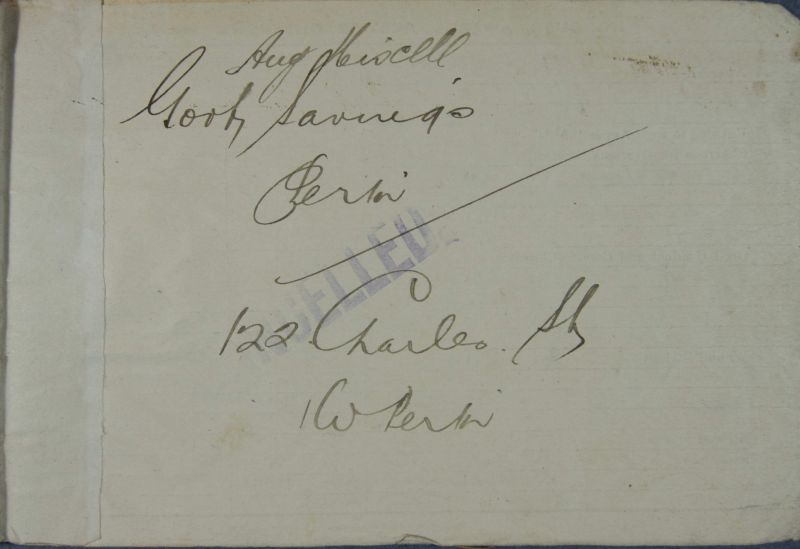 Aug
Govt Savings
Perth
CELLED
122 Charles St
W Perth